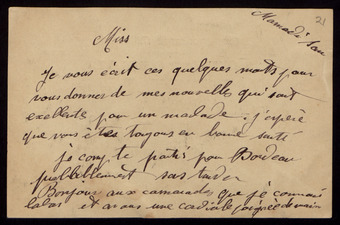 21
Miss
Je vous écrit ces quelques mots pour
vous donnes de mes nouvelles qui sont
exellente pour un malade. j'espére
que vous êtes toujours en bonne santé
je compte patir pour Bordeau
sas tarder
Bonjour aux camarades que je connais
labas et avous une cordiale poignée de main